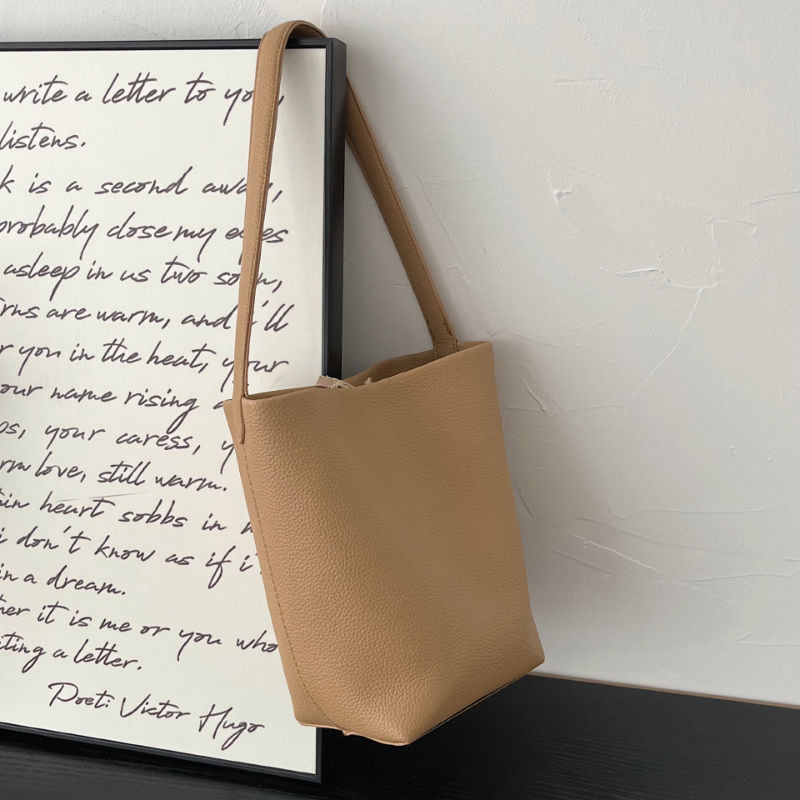 write a letter to you,
listens.
k is a second away,
probably close my eyes
asleep in us two soon,
rns are warm, and i'll
r you in the heat, your
our name rising a
os, your caress, y
rm love, still warm.
hin heart sobbs in m
i don't know as if i
in a dream.
her it is me or you who
iting a letter.
Poeti: Victor Hugo